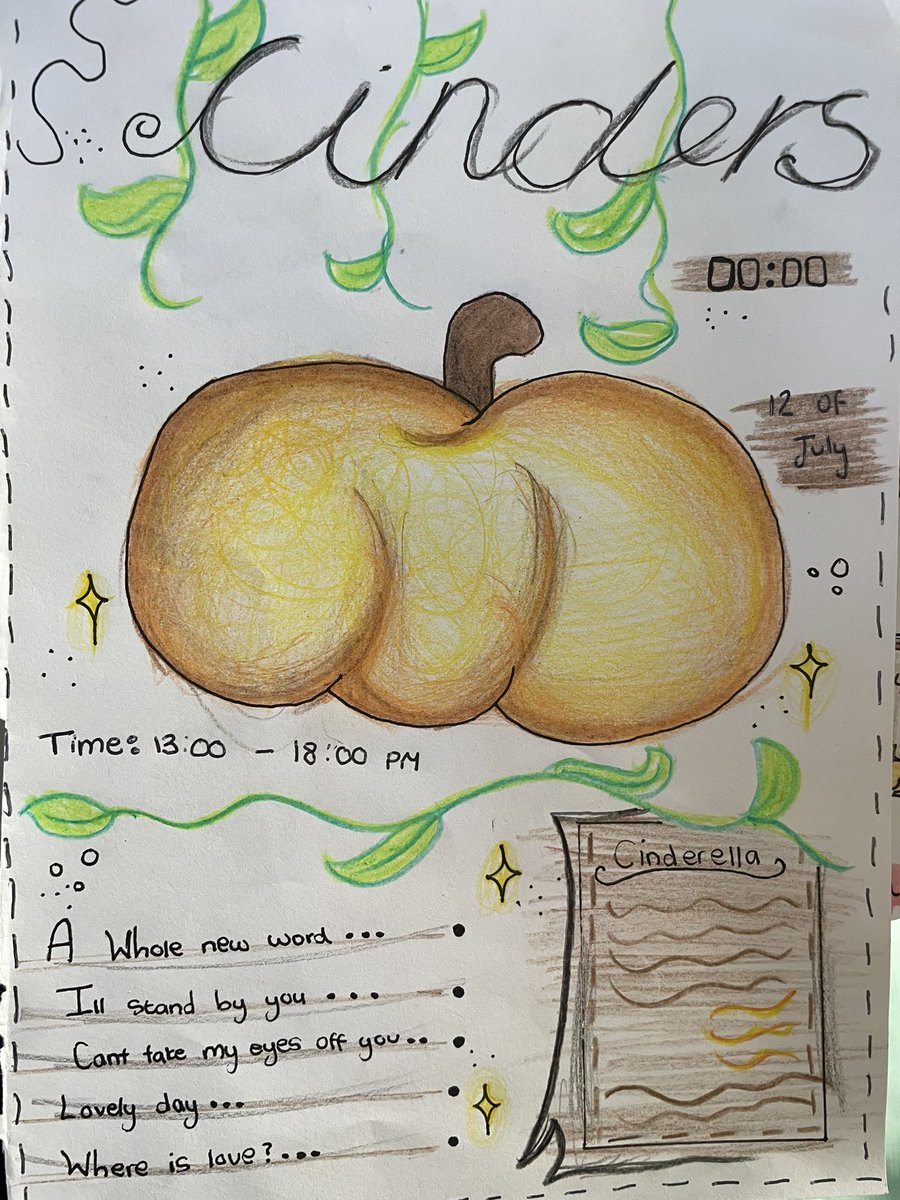 Cinders
00:00
12 OF
July
Time: 13:00 - 18:00 PM
Cinderella
A Whole new word...
Ill stand by you ...
Cant take my eyes off you..
Lovely day...
Where is love?...